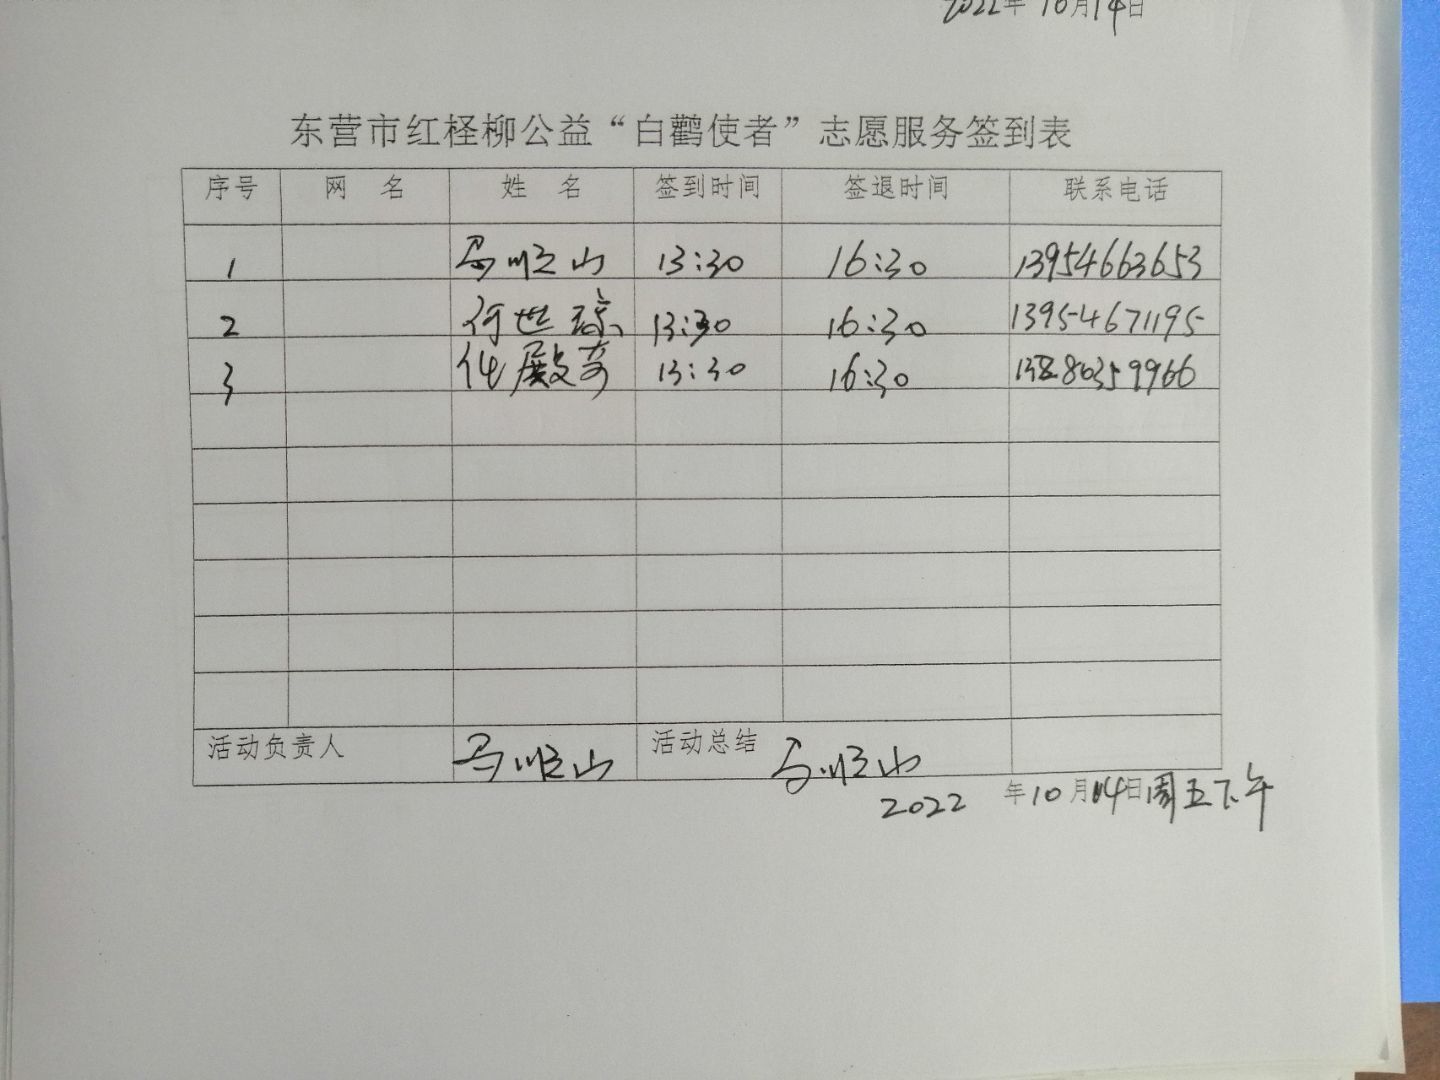 2022年10月14日
东营市红柽柳公益“白鹳使者”志愿服务签到表
序号 网 名 姓 名 签到时间 签退时间 联系电话
1 马顺山 13:30 16:30 13954663653
2 何世琼 13:30 16:30 13954671195
3 殿奇 13:30 16:30
活动负责人 马顺山 活动总结 马顺山
2022 年10月14日周五下午